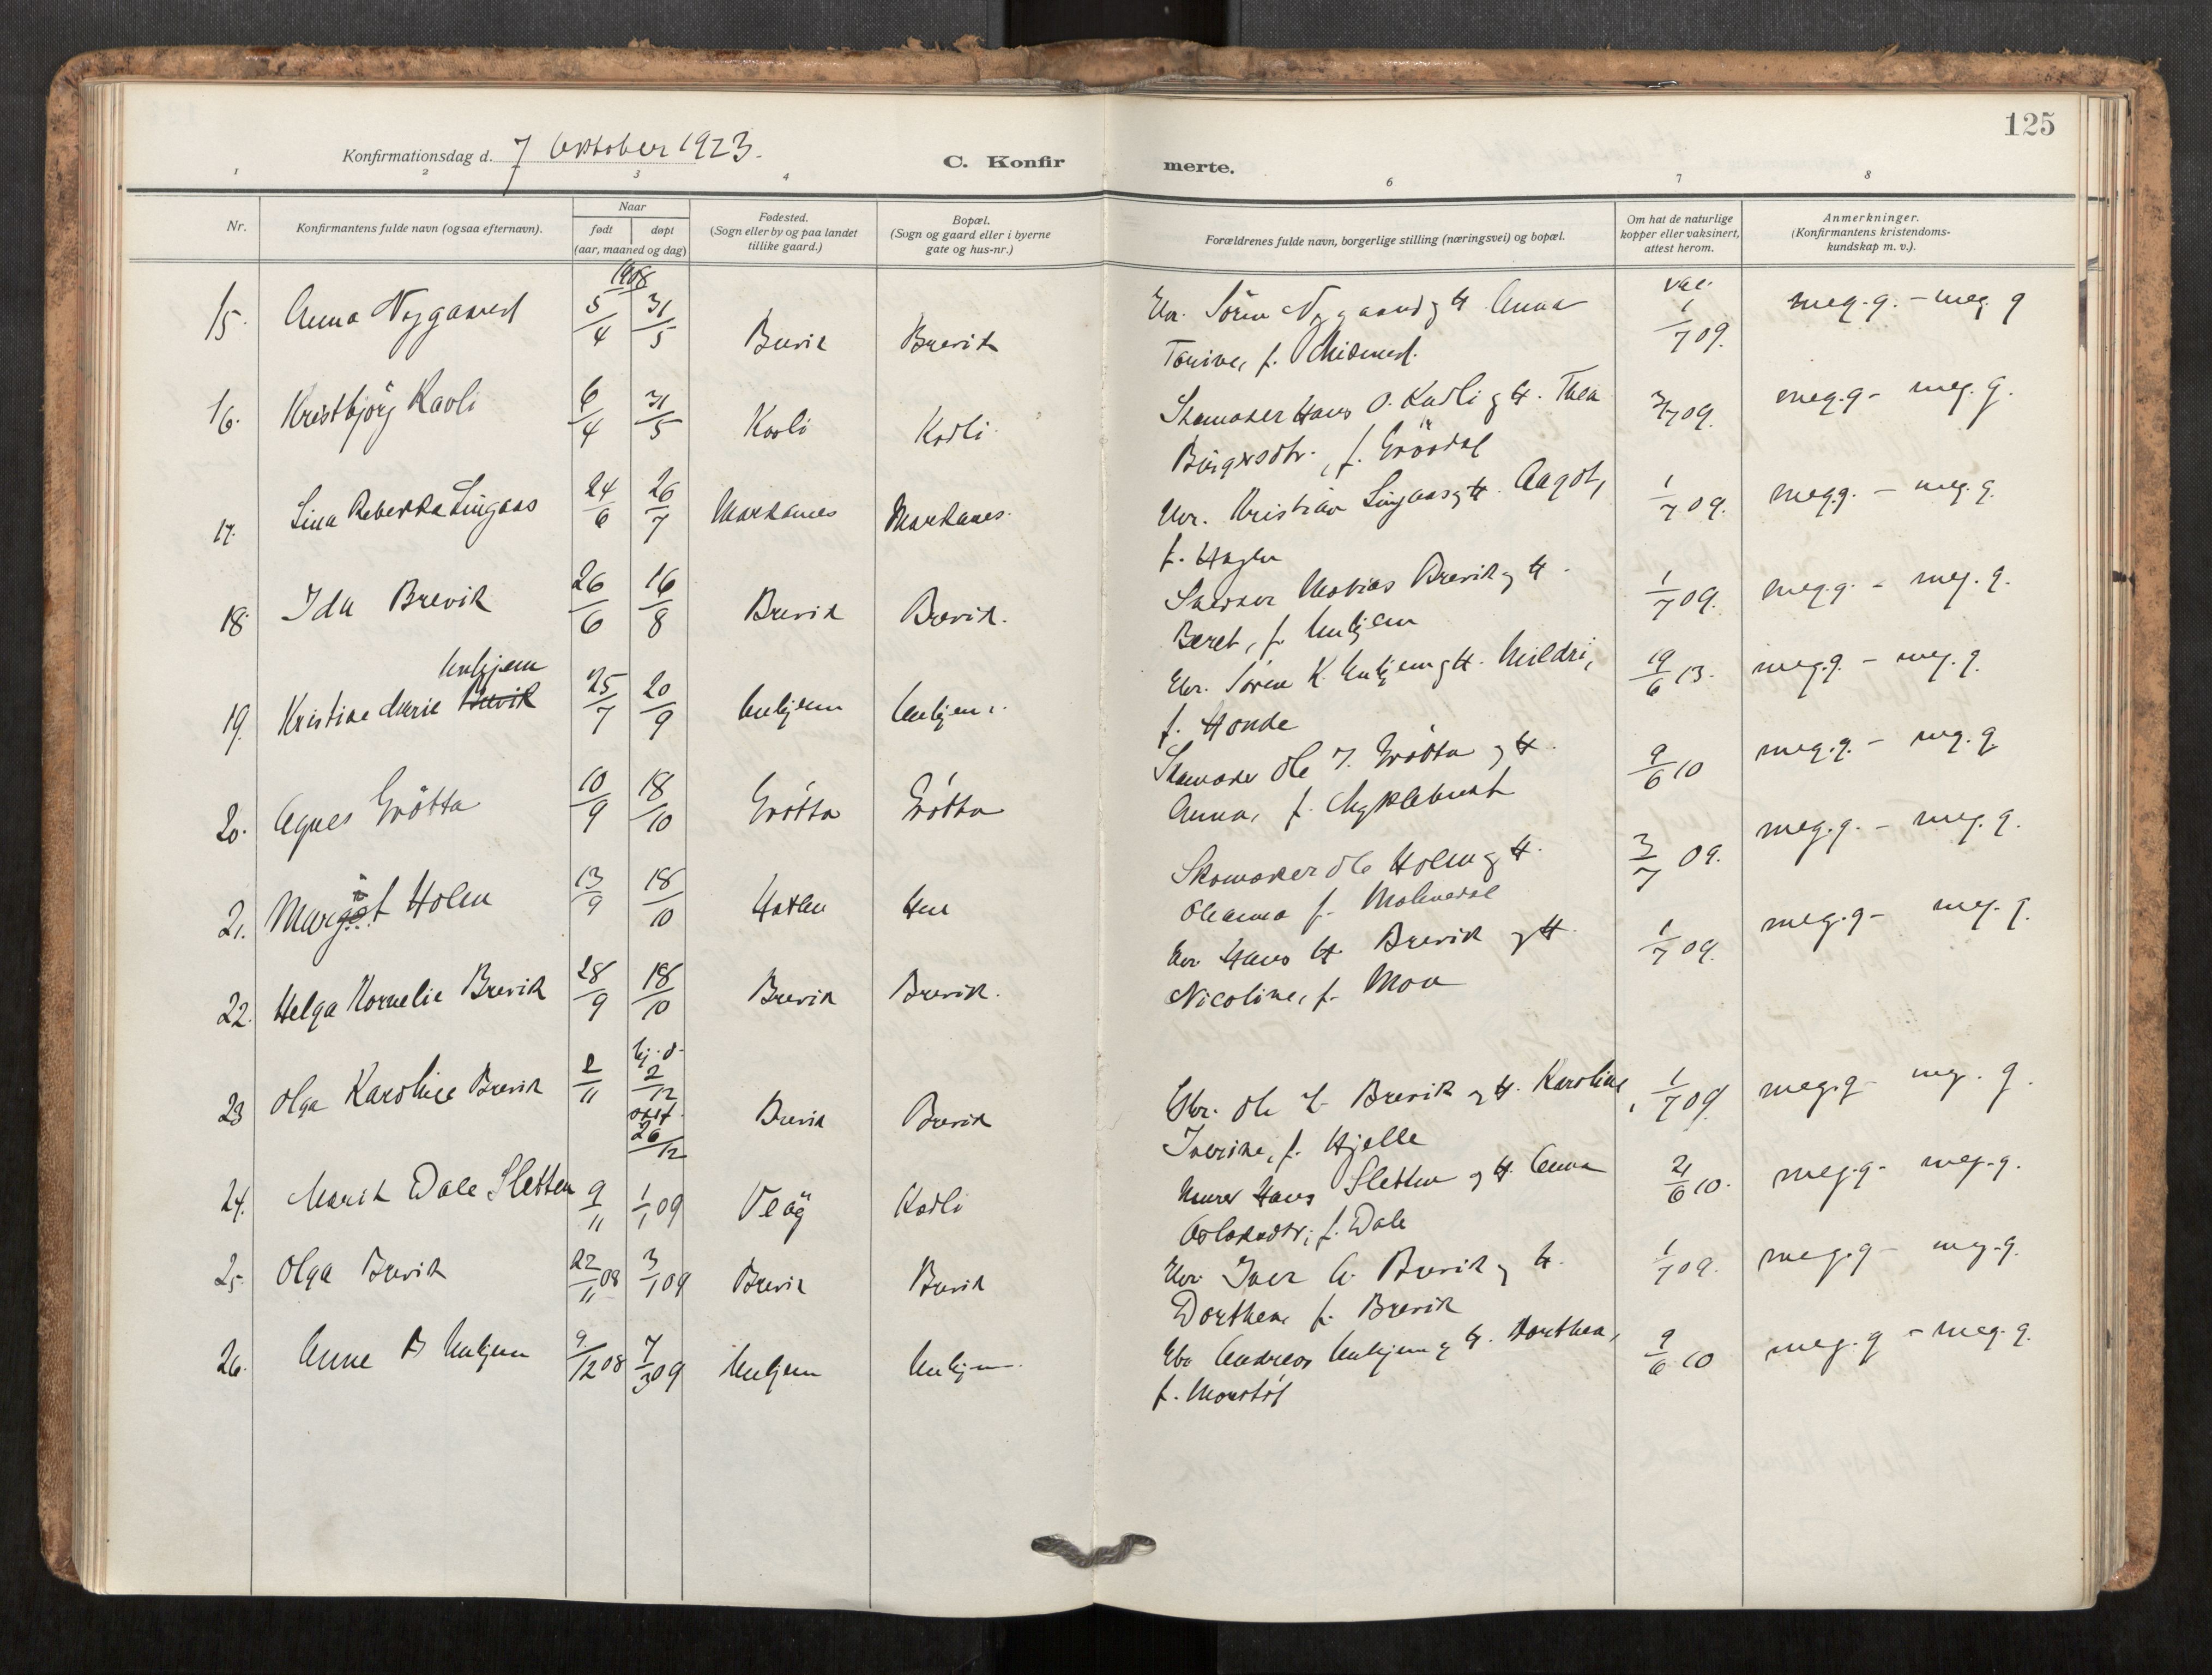 125
Konfirmationsdag d. 7 Oktober 1923.
C. Konfir merte.
1 2 3 4 6 7 8
Nr.
Konfirmantens fulde navn (ogsaa efternavn).
Naar
født døpt
(aar, maaned og dag)
Fødested.
(Sogn eller by og paa landet
tillike gaard.)
Bopæl.
(Sogn og gaard eller i byerne
gate og hus-nr.)
Forældrenes fulde navn, borgerlige stilling (næringsvei) og bopæl.
Om hat de naturlige
kopper eller vaksinert,
attest herom.
Anmerkninger.
(Konfirmantens kristendoms-
kundskap m. v.).
1908 vac.
15. Anna Nygaard 5/4 31/5 Brevik Brevik Søren Nygaard g H Anna 1/7 09. meg.g. - meg. g
f.
16. Kristbjörg Kavli 6/4 31/5 Hans O. g H. Thea 3/7 09. meg.g - meg. g.
f.
17. Lina Rebekka Lingaas 24/6 26/7 Markanes Markanes. Kristian Lingaas g H. Aagot, 1/7 09. meg.g. - meg. g.
f. Hagen
18. Ida Brevik 26/6 16/8 Brevik Brevik. Mathias Brevik g H. 1/7 09. meg.g. - meg. g.
Beret, f. Unhjem
Unhjem
19. Kristine Marie Brevik 25/7 20/9 Unhjem Unhjem. Søren K. Unhjem g H. Mildri, 19/6 13. meg.g. - meg. g.
f. Honde
20. Agnes Grötta 10/9 18/10 Grötta Grötta Skomaker Ole J. Grötta g H. 9/6 10 meg.g. - meg. g
Anna, f. Myklebust
21. Margit Holen 13/9 18/10 Skomaker Ole Holen g H. 3/7 09. meg.g. - meg. g.
Oleanna f.
22. Helga Kornelie Brevik 28/9 18/10 Brevik Brevik. Hans H. Brevik g H. 1/7 09. meg.g - meg. g.
Nicoline, f. Moa
hj. d.
23 Olga Karoline Brevik 2/11 2/12 Brevik Brevik Ole L. Brevik g H. Karoline, 1/7 09 meg.g - meg. g.
26/12
f. Hjelle
24. Marit Dale Sletten 9/11 1/1 09 Veöy Kavli Murer Hans Sletten g H. Anna 21/6 10. meg.g - meg.g.
f. Dale
25. Olga Brevik 22/11 08 3/1 09 Brevik Brevik Iver A. Brevik g H. 1/7 09. meg.g - meg.g.
Dorthea, f. Brevik
26. Anne B Unhjem 9/12 08 7/3 09 Unhjem Unhjem. Andreas Unhjem g H. Dorthea, 9/6 10 meg.g - meg.g.
f. Monstöl